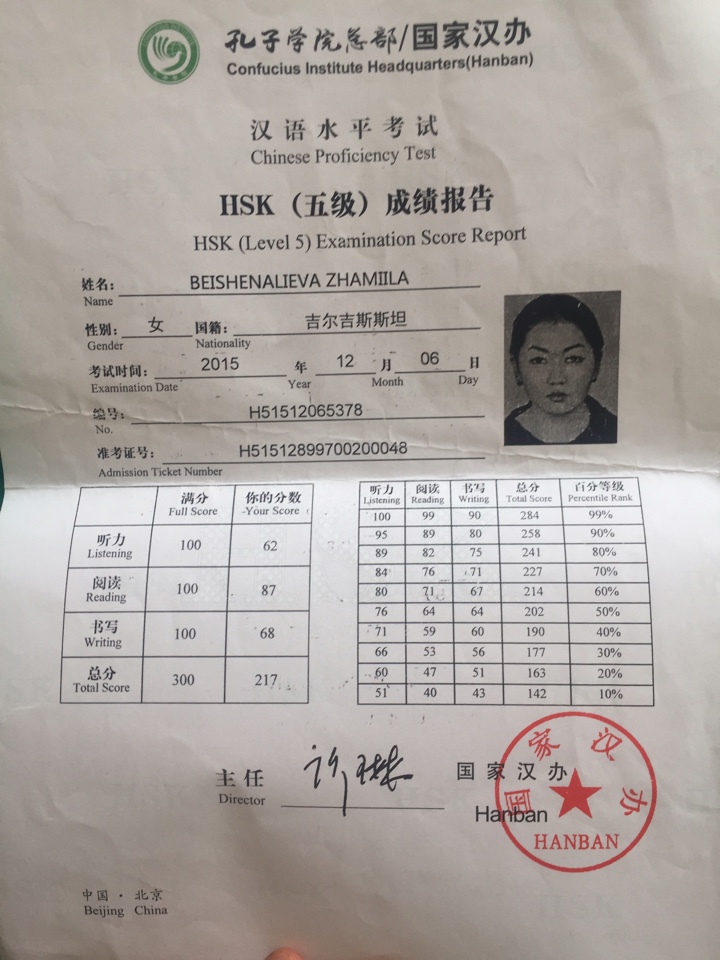 孔子学院总部/国家汉办
Confucius Institute Headquarters(Hanban)
汉语水平考试
Chinese Proficiency Test
HSK（五级）成绩报告
HSK (Level 5) Examination Score Report
姓名: BEISHENALIEVA ZHAMIILA
Name
性别: 女 国籍: 吉尔吉斯斯坦
Gender Nationality
考试时间: 2015 年 12 月 06 日
Examination Date Year Month Day
编号: H51512065378
No.
准考证号: H51512899700200048
Admission Ticket Number
满分 你的分数
Full Score Your Score
听力 100 62
Listening
阅读 100 87
Reading
书写 100 68
Writing
总分 300 217
Total Score
听力 阅读 书写 总分 百分等级
Listening Reading Writing Total Score Percentile Rank
100 99 90 284 99%
95 89 80 258 90%
89 82 75 241 80%
84 76 71 227 70%
80 71 67 214 60%
76 64 64 202 50%
71 59 60 190 40%
66 53 56 177 30%
60 47 51 163 20%
51 40 43 142 10%
主任 许琳 国家汉办
Director Hanban
国家汉办
HANBAN
中国·北京
Beijing China